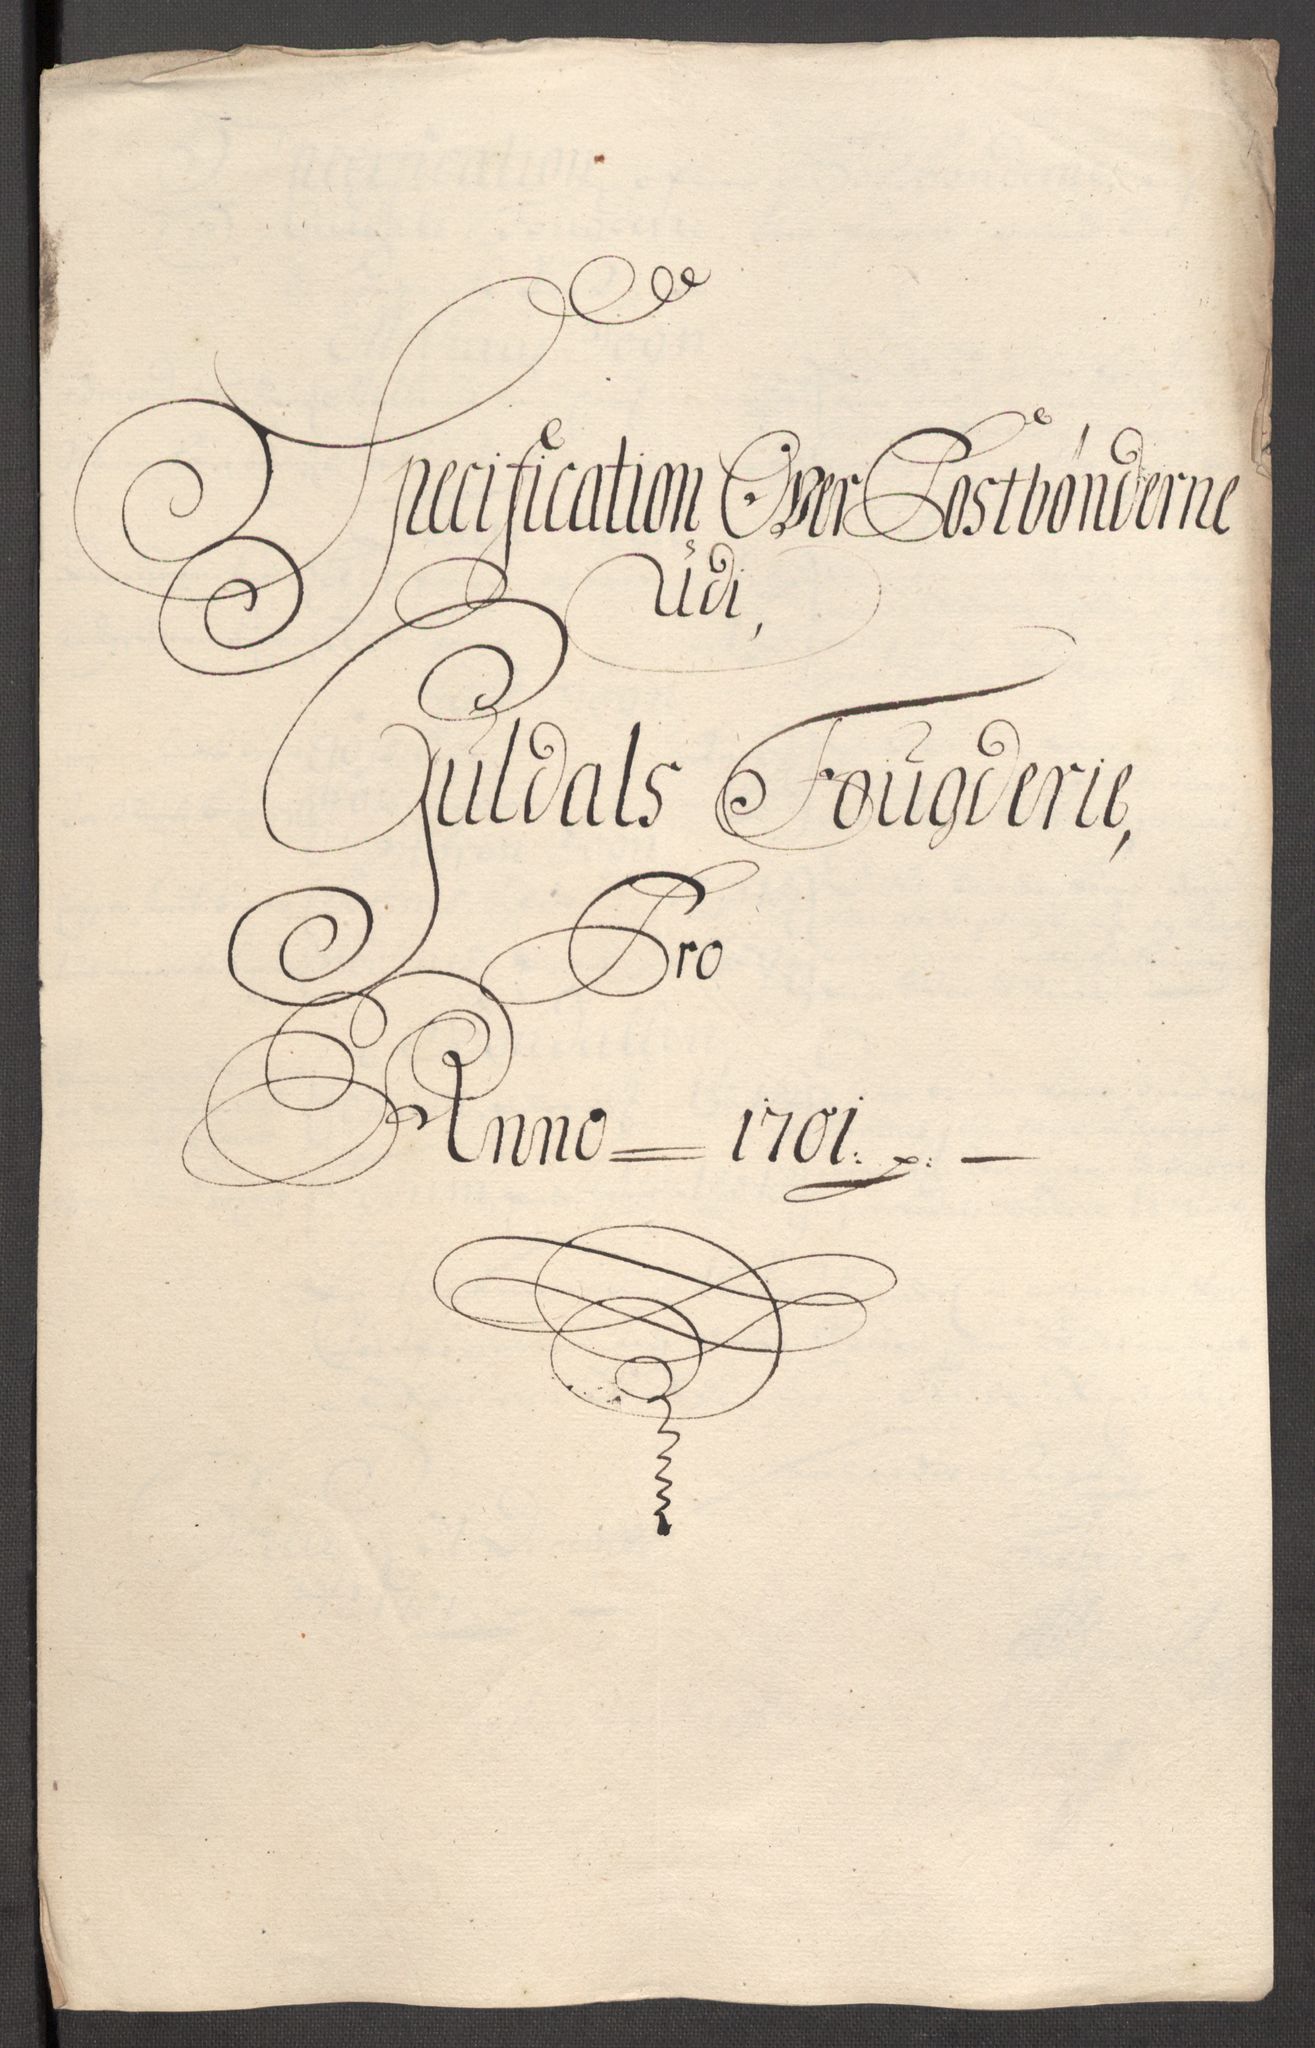 Specification Over Postbönderne
Udi,
Guldals Fougderie,
Pro
Anno = 1701. —